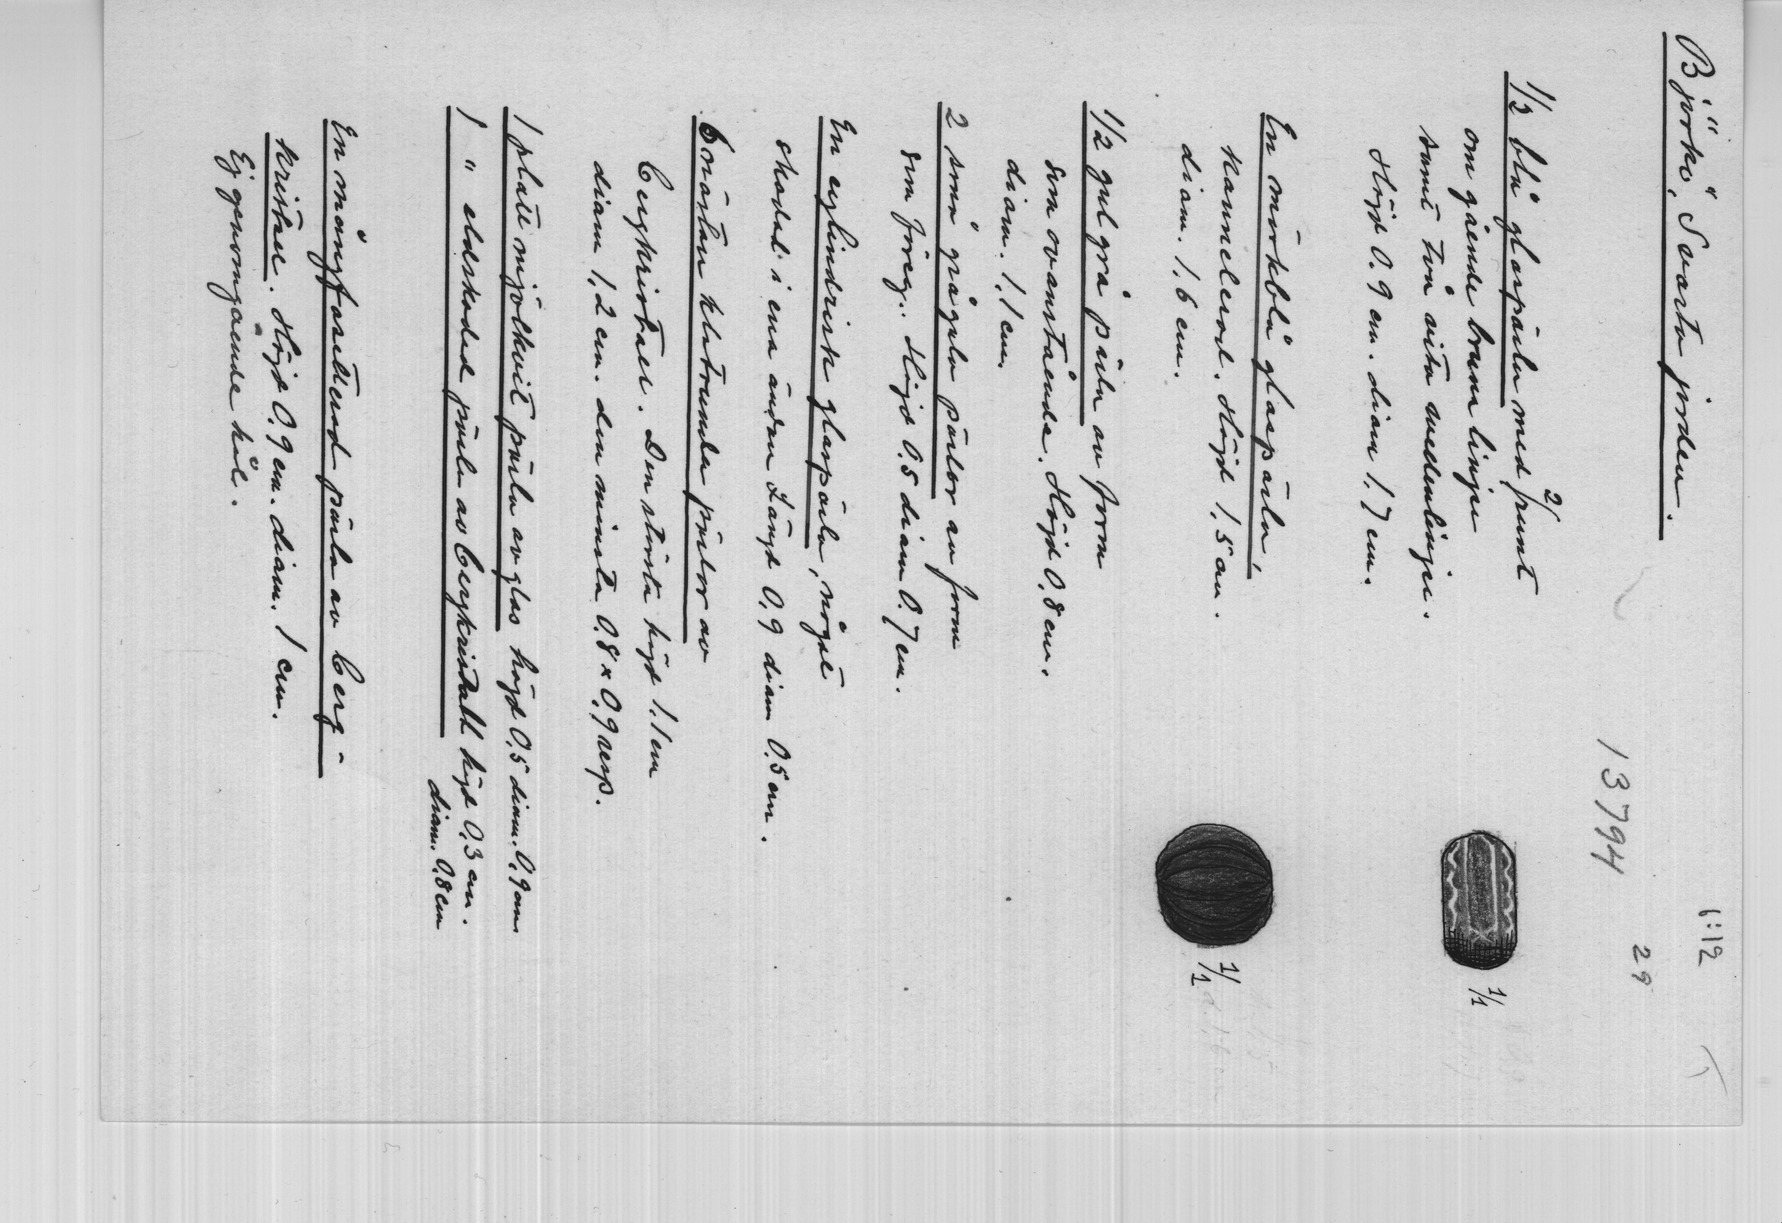 "Björkö", Svarta jorden.
1:12
29
13794
1/2 blå glaspärla med 2/ runt
om gående bruna linjer
samt två vita mellanlinjer.
Höjd 0.9 cm. diam 1.7 cm.
1/1
En mörkblå glaspärla,
kannelerad. Höjd 1,5 cm.
diam. 1,6 cm.
1/1
1/2 gulgrå pärla av form
som ovanstående. Höjd 0,8 cm.
diam. 1,1 cm.
2 små grågula pärlor av form
som föreg. Höjd 0,5 diam 0,7 cm.
En cylindrisk glaspärla, något
skadad i ena ändan Längd 0,9 diam 0,5 cm.
6 nästan klotrunda pärlor av
bergkristall. Den största höjd 1,1 cm
diam 1,2 cm. den minsta 0,8 x 0,9 resp.
1 platt mjölkvit pärla av glas höjd 0,5 diam. 0,9 cm
1 " eldskadad pärla av bergkristall höjd 0,3 cm.
diam. 0,8 cm
En mångfacetterad pärla av berg-
kristall. Höjd 0,9 cm. diam. 1 cm.
Ej genomgående hål.